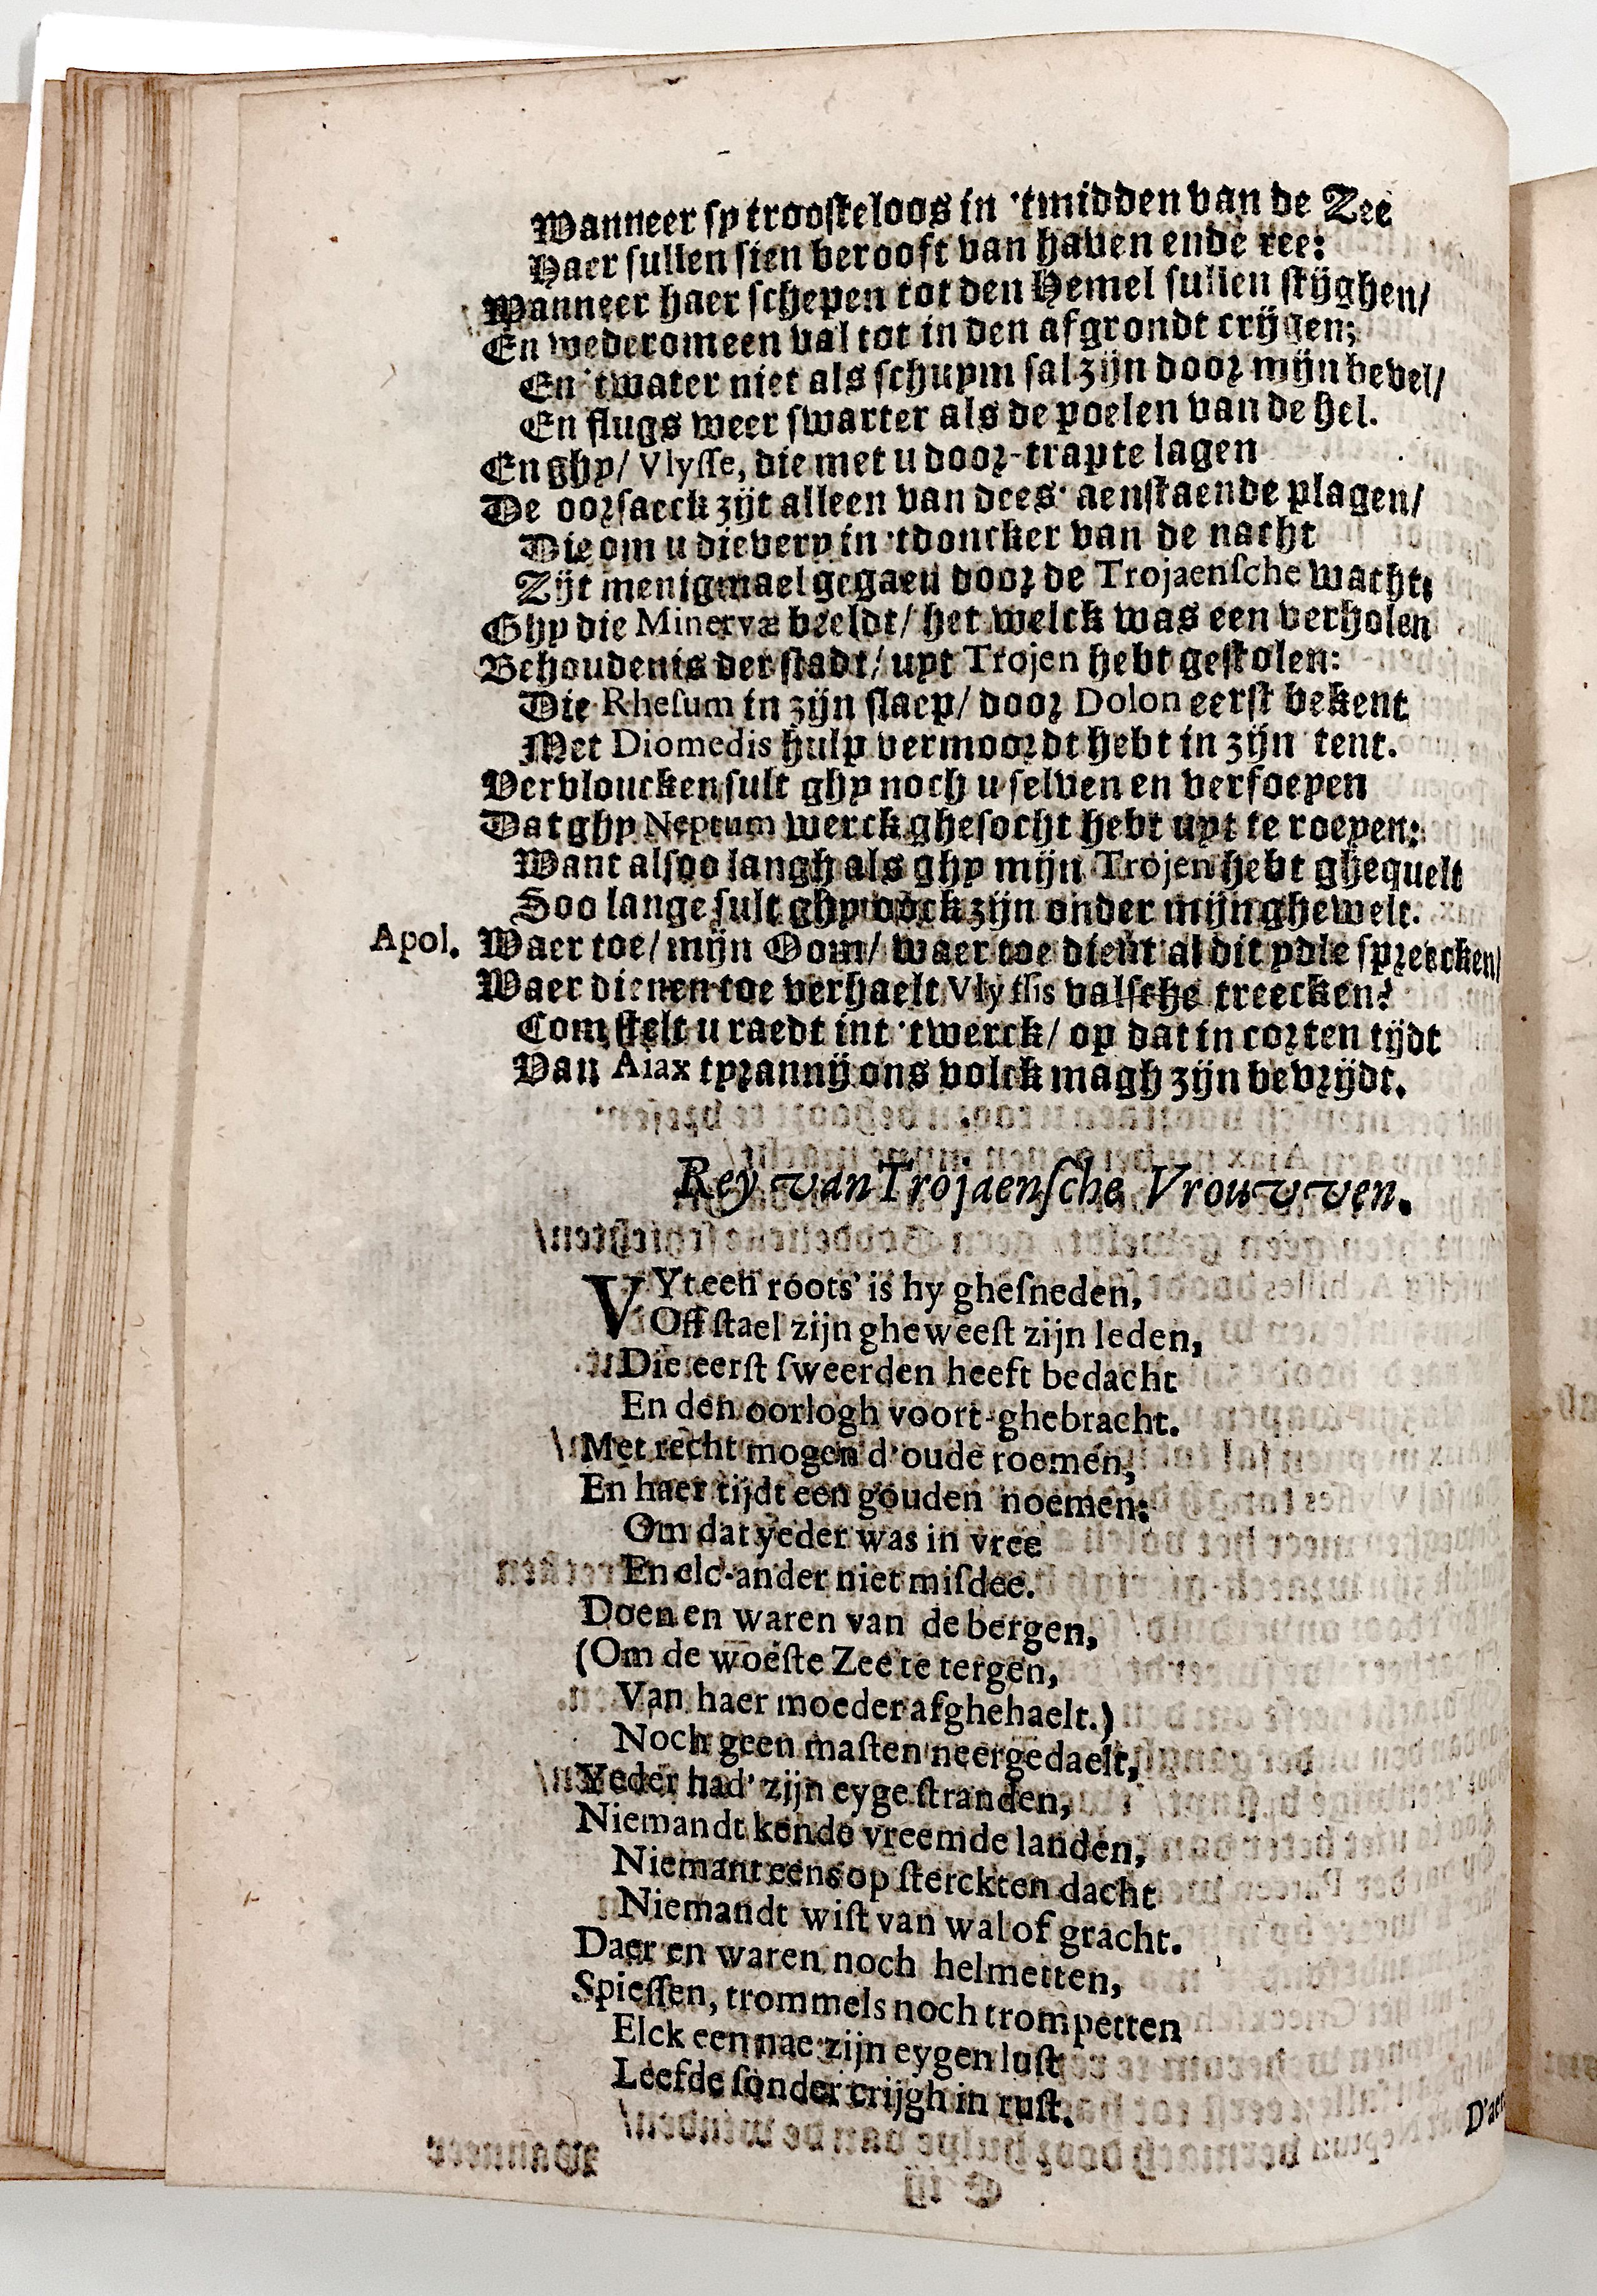 Wanneer sy troosteloos in 'tmidden van de Zee
Haer sullen sien berooft van haven ende ree:
Wanneer haer schepen tot den Hemel sullen stijghen/
En wederom een val tot in den afgrondt crijgen;
En 'twater niet als schuym sal zijn door mijn bevel/
En flugs weer swarter als de poelen van de hel.
En ghy/ Vlysse, die met u door-trapte lagen
De oorsaeck zijt alleen van dees' aenstaende plagen/
Die om u dievery in 'tdoncker van de nacht
Zijt menigmael gegaen door de Trojaensche wacht:
Ghy die Minervæ beeldt/ het welck was een verholen
Behoudenis der stadt/ uyt Trojen hebt gestolen:
Die Rhesum in zijn slaep/ door Dolon eerst bekent
Met Diomedis hulp vermoordt hebt in zijn tent.
Vervloucken sult ghy noch u selven en verfoeyen
Dat ghy Neptuni werck ghesocht hebt uyt te roeyen:
Want alsoo langh als ghy mijn Trojen hebt ghequelt
Soo lange sult ghy oock zijn onder mijn ghewelt.
Apol. Waer toe/ mijn Oom/ waer toe dient al dit ydle spreecken/
Waer dienen toe verhaelt Vlyssis valsche treecken?
Com stelt u raedt int 'twerck/ op dat in corten tijdt
Van Aiax tyrannij ons volck magh zijn bevrijdt.
Rey van Trojaensche Vrouvven.
VYt een roots' is hy ghesneden,
Off stael zijn gheweest zijn leden,
Die eerst sweerden heeft bedacht
En den oorlogh voort-ghebracht.
Met recht mogen d'oude roemen,
En haer tijdt een gouden noemen:
Om dat yeder was in vree
En elc-ander niet misdee.
Doen en waren van de bergen,
(Om de woeste Zee te tergen,
Van haer moeder afghehaelt.)
Noch geen masten neergedaelt,
Yeder had' zijn eyge stranden,
Niemandt kende vreemde landen,
Niemant eens op sterckten dacht
Niemandt wist van wal of gracht.
Daer en waren noch helmetten,
Spiessen, trommels noch trompetten
Elck een nae zijn eygen lust
Leefde sonder crijgh in rust.
D'aer